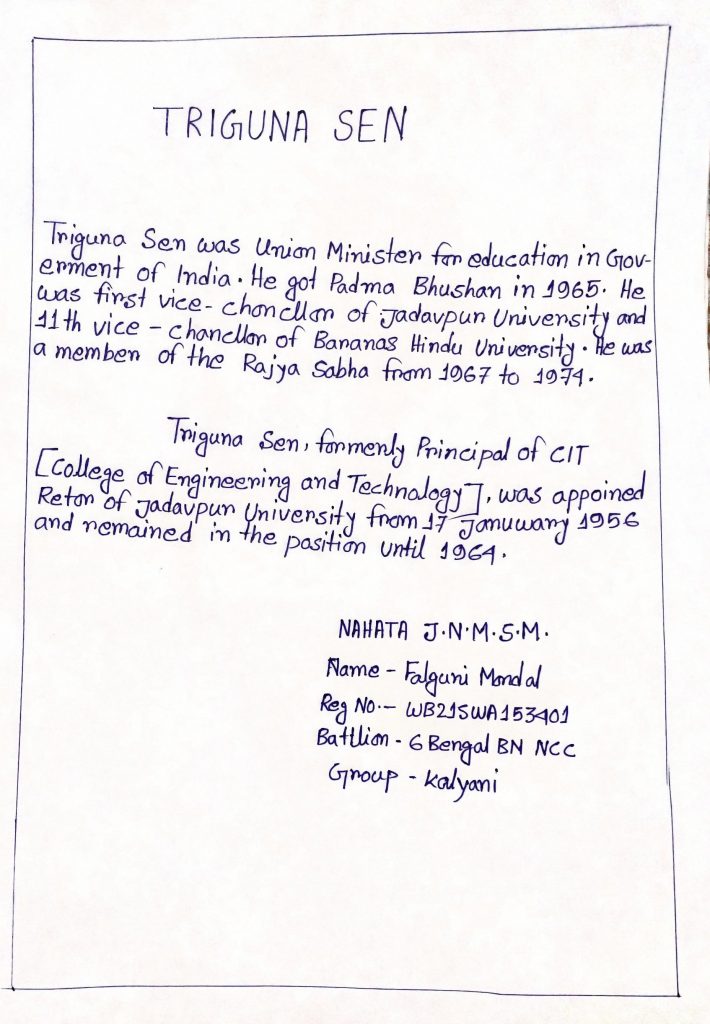 TRIGUNA SEN
Triguna Sen was Union Minister for education in Gov-
erment of India. He got Padma Bhushan in 1965. He
was first vice-choncllor of Jadavpur University and
11th vice - chancllor of Bananas Hindu University. He was
a member of the Rajya Sabha from 1967 to 1974.
Triguna Sen, formerly Principal of CIT
[College of Engineering and Technology], was appoined
Retor of Jadavpur University from 17 Januwary 1956
and remained in the position until 1964.
NAHATA J.N.M.S.M.
Name - Falguni Mondal
Reg No. - WB21SWA153401
Battlion - 6 Bengal BN NCC
Group - Kalyani